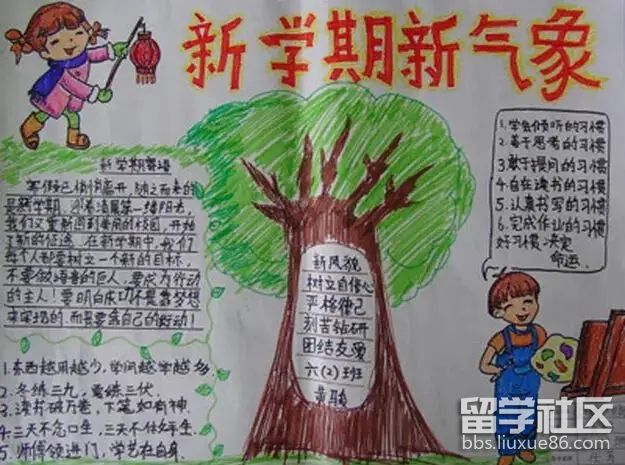 新学期新气象
新学期寄语
寒假已悄悄离开,随之而来的
是新学期,沐着清晨第一缕阳光,
我们又重新回到美丽的校园,开始
了新的征途。在新学期中,我们
每个人都要树立一个新的目标。
不要做语言的巨人,要成为行动
的主人!要明白成功不是靠梦想
来实现的,而是要靠自己的行动!
1.东西越用越少,学问越学越多.
2.冬练三九,夏练三伏.
3.读书破万卷,下笔如有神.
4.三天不念口生,三天不做手生.
5.师傅领进门,学艺在自身.
新风貌
树立自信心
严格律己
刻苦钻研
团结友爱
六(2)班
1.学会倾听的习惯
2.善于思考的习惯
3.敢于提问的习惯
4.自在读书的习惯
5.认真书写的习惯
6.完成作业的习惯
好习惯,决定
命运.
留学社区
bbs.liuxue86.com